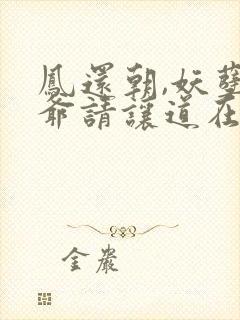 鳳還朝,妖孽
爺請讓道在
金巖